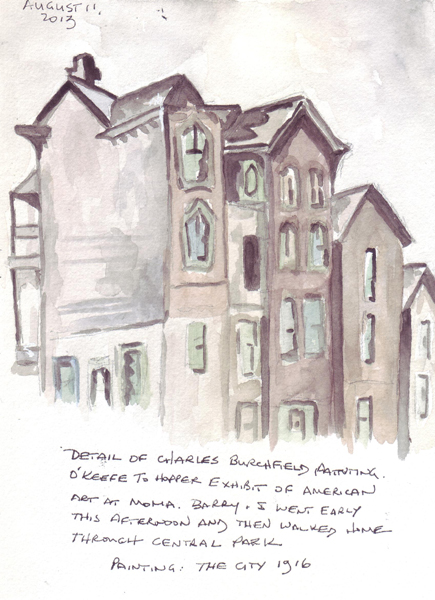 AUGUST 11,
2013
DETAIL OF CHARLES BURCHFIELD PAINTING.
O'KEEFE TO HOPPER EXHIBIT OF AMERICAN
ART AT MOMA. BARRY & I WENT EARLY
THIS AFTERNOON AND THEN WALKED HOME
THROUGH CENTRAL PARK
PAINTING: THE CITY 1916